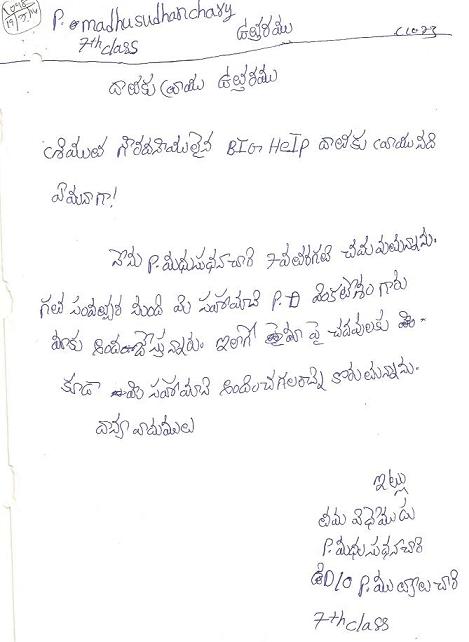 P. madhusudhanchary
7th class
ఉత్తరము
C1073
దాతకు వ్రాయు ఉత్తరము
శ్రీయుత గౌరవనీయులైన BIG HELP దాతకు వ్రాయునది
ఏమనగా!
నేను P. మధుసుధనాచారి 7వ తరగతి చదువుతున్నాను.
గత సంవత్సర నుండి మీ సహాయాన్ని P.D వెంకటేశం గారు
మాకు అందచేస్తున్నారు. ఇలాగే పై చదువులకు
కూడా మీ సహాయాన్ని అందించగలరాని కోరుతున్నాను.
ధాన్యావాదములు
ఇట్లు
తమ విధేయుడు
P. మధుసుధనాచారి
D/o P. ముత్యాలు చారి
7th class